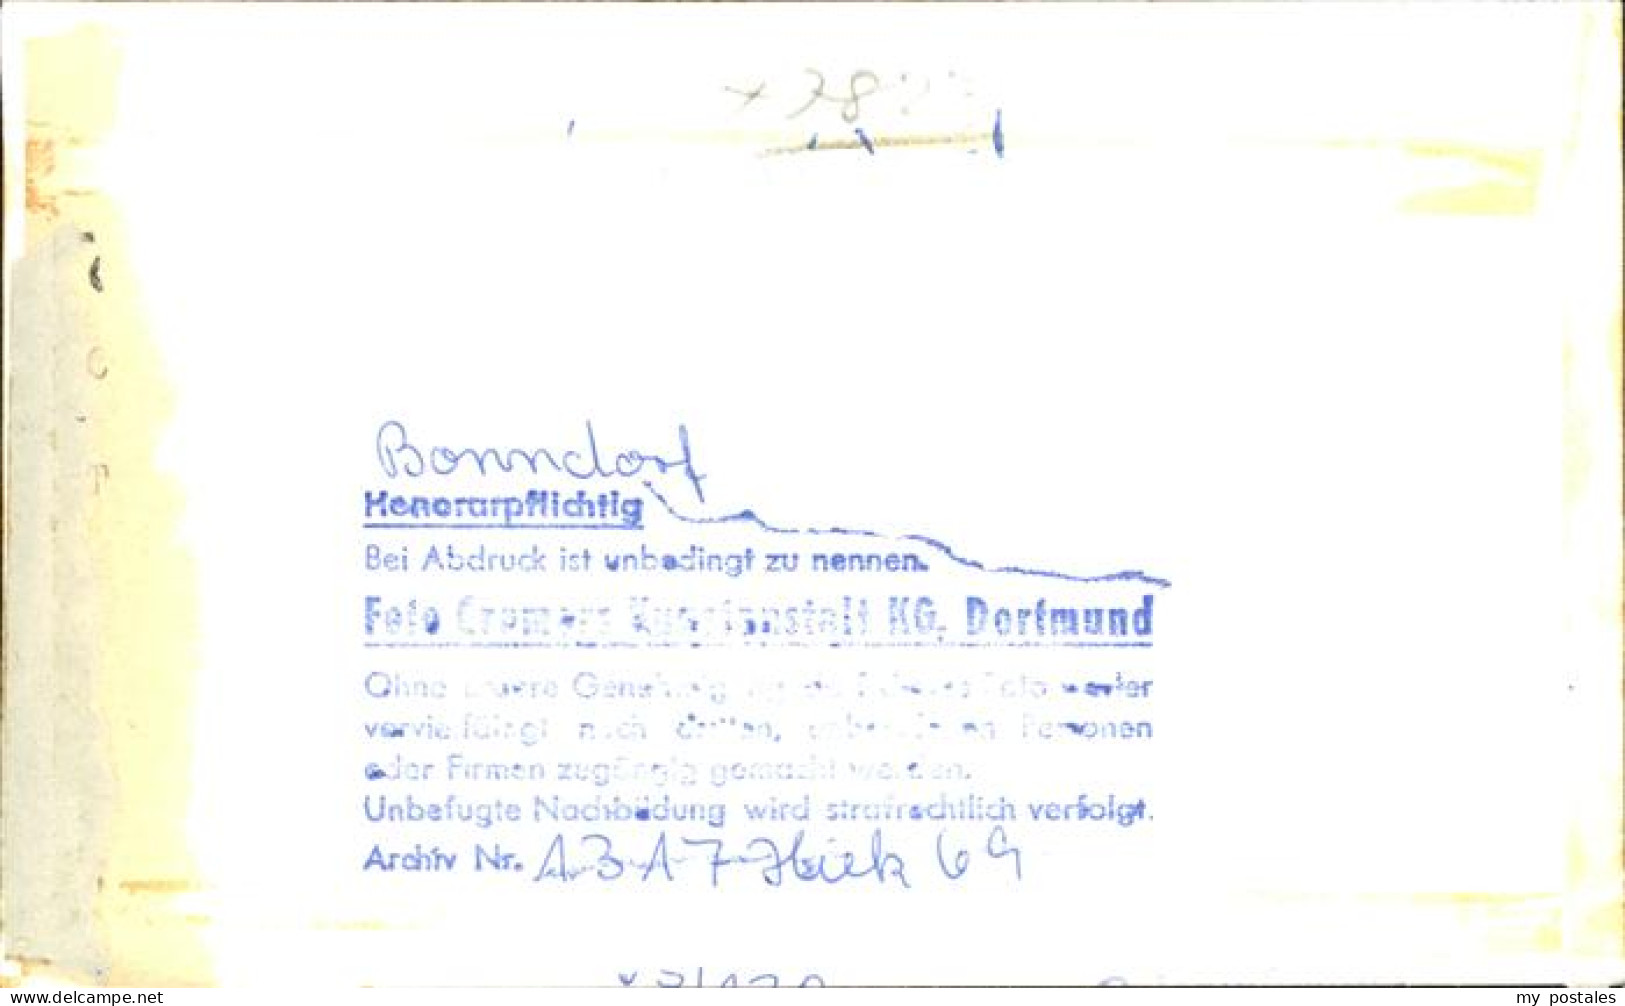 Bonndorf
Honorarpflichtig
Bei Abdruck ist unbedingt zu nennen.
Foto Cramers Kunstanstalt KG, Dortmund
Ohne unsere Genehmig weiter
vervielfältigt noch dritten, Personen
oder Firmen zugängig gemacht werden.
Unbefugte Nachbildung wird strafrechtlich verfolgt.
Archiv Nr. 1317 69
www.delcampe.net
my postales